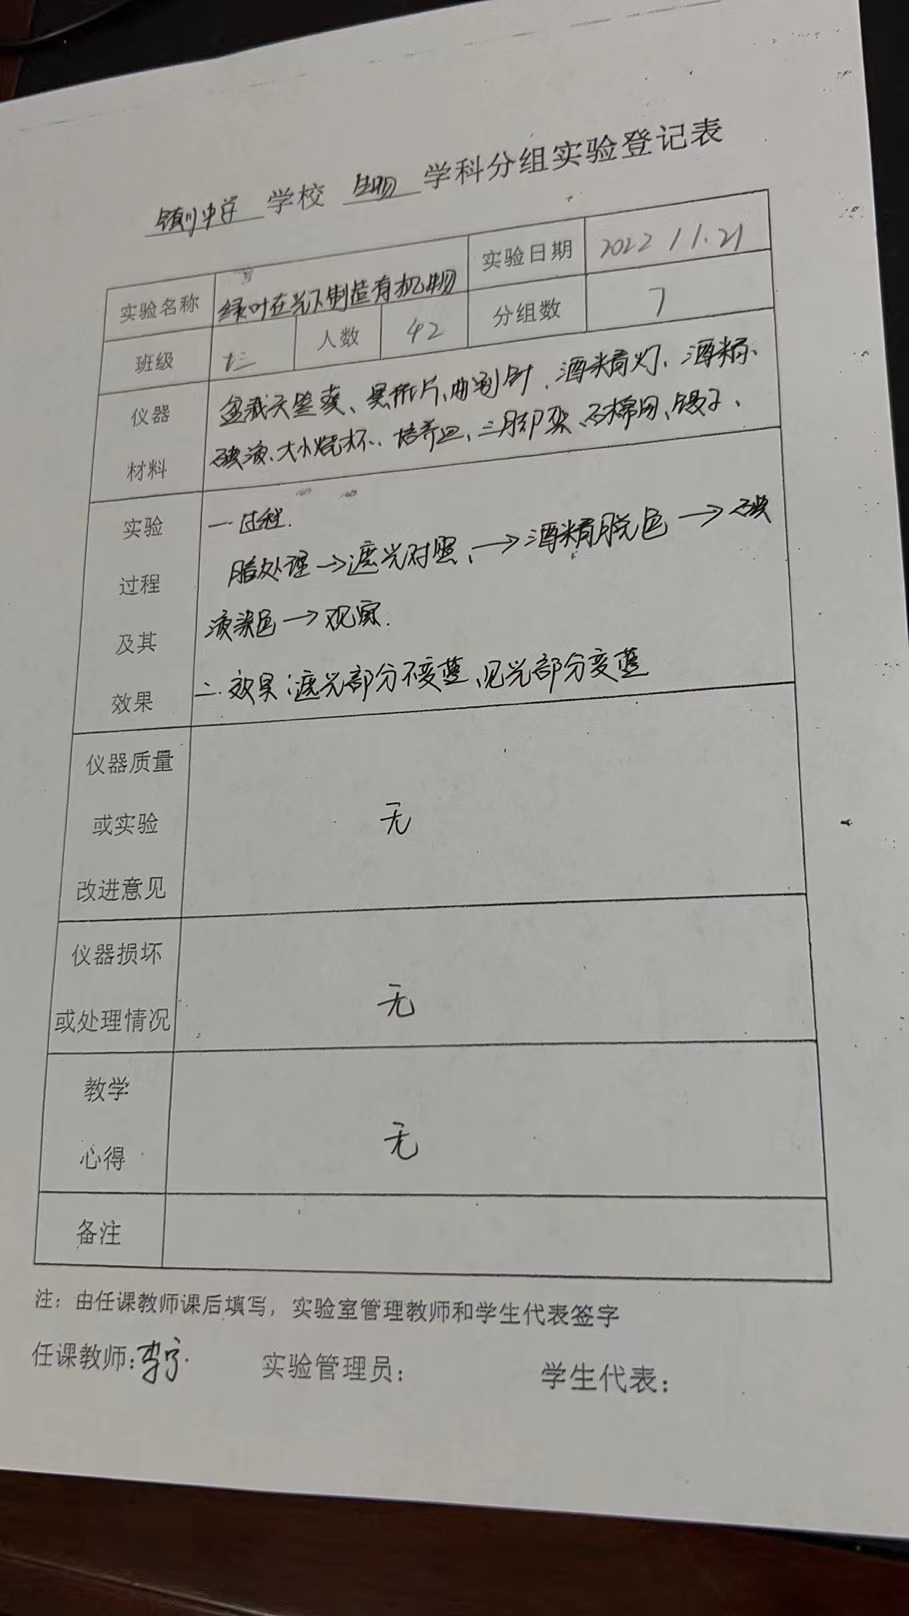 镇川中学 学校 生物 学科分组实验登记表
实验名称 绿叶在光下制造有机物 实验日期 2022 11.21
班级 七三 人数 42 分组数 7
仪器材料 盆栽天竺葵、黑纸片、曲别针、酒精灯、酒精、
碘液、大小烧杯、培养皿、三脚架、石棉网、镊子、
实验过程及其效果 一 过程.
暗处理→遮光对照、→酒精脱色→碘
液染色→观察.
二.效果:遮光部分不变蓝、见光部分变蓝
仪器质量或实验改进意见 无
仪器损坏或处理情况 无
教学心得 无
备注
注：由任课教师课后填写，实验室管理教师和学生代表签字
任课教师: 李宁 实验管理员: 学生代表: